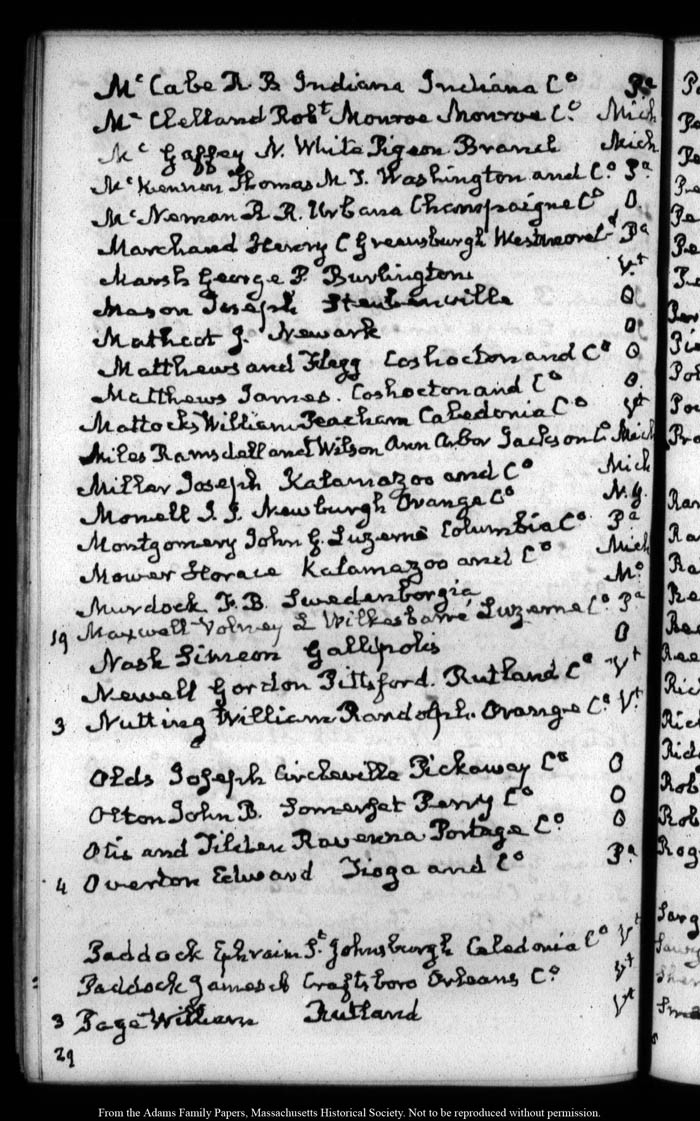 McCabe R B Indiana Indiana Co Pa
McClelland Robt Monroe Monroe Co. Mich
McGaffey N. White Pigeon Branch Mich
McKennon Thomas M. T. Washington and Co. Pa
McNeman R R. Urbana Champaigne Co O.
Marchand Henry C Greensburgh Westmoreld Pa
Marsh George P. Burlington Vt
Mason Joseph Steubenville O
Mathcot J. Newark O
Matthews and Flegg Coshocton and Co O
Matthews James. Coshocton and Co O.
Mattocks William Peacham Caledonia Co Vt
Miles Ramsdall and Wilson Ann Arbor Jackson Co Mich
Miller Joseph Kalamazoo and Co Mich
Monell J. J. Newburgh Orange Co N.Y.
Montgomery John G. Luzerne Columbia Co Pa
Mower Horace Kalamazoo and Co Mich
Murdock F. B. Swedenborgia Mo
19 Maxwell Volney L Wilkesbarré Luzerne Co. Pa
Nash Simeon Gallipolis O
Newell Gordon Pittsford. Rutland Co Vt
3 Nutting William Randolph. Orange Co. Vt
Olds Joseph Circleville Pickaway Co O
Olton John B. Somerset Perry Co O
Otis and Tilden Ravenna Portage Co. O
4 Overton Edward Tioga and Co Pa
Paddock Ephraim St. Johnsburgh Caledonia Co Vt
Paddock James Craftsboro Orleans Co. Vt
3 Page William Rutland Vt
29
From the Adams Family Papers, Massachusetts Historical Society. Not to be reproduced without permission.